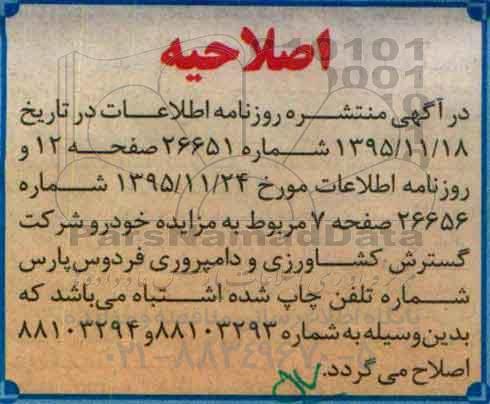 اصلاحیه
در آگهی منتشره روزنامه اطلاعات در تاریخ
۱۳۹۵/۱۱/۱۸ شماره ۲۶۶۵۱ صفحه ۱۲ و
روزنامه اطلاعات مورخ ۱۳۹۵/۱۱/۲۴ شماره
۲۶۶۵۶ صفحه ۷ مربوط به مزایده خودرو شرکت
گسترش کشاورزی و دامپروری فردوس پارس
شماره تلفن چاپ شده اشتباه می‌باشد که
بدین‌وسیله به شماره ۸۸۱۰۳۲۹۳ و ۸۸۱۰۳۲۹۴
اصلاح می گردد.
ParsNamadData